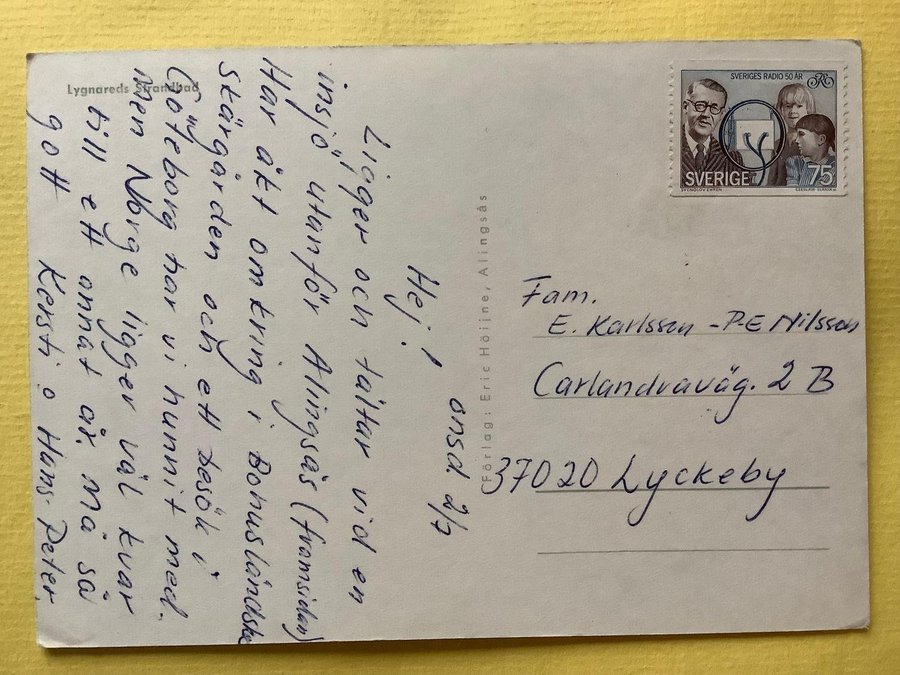 Lygnareds Strandbad
onsd 2/7
Hej!
Ligger och tältar vid en
insjö utanför Alingsås (framsidan)
Har åt omkring i Bohusländska
skärgården och ett besök i
Göteborg har vi hunnit med.
men Norge ligger väl kvar
till ett annat år. må så
gott Kersti o Hans-Peter
Förlag: Eric Höijne, Alingsås
SVERIGES RADIO 50 ÅR
SVERIGE 75
SVENOLOV EHRÉN CZESLAW SLANIA sc.
Fam.
E. Karlsson - P-E Nilsson
Carlandraväg. 2 B
37020 Lyckeby